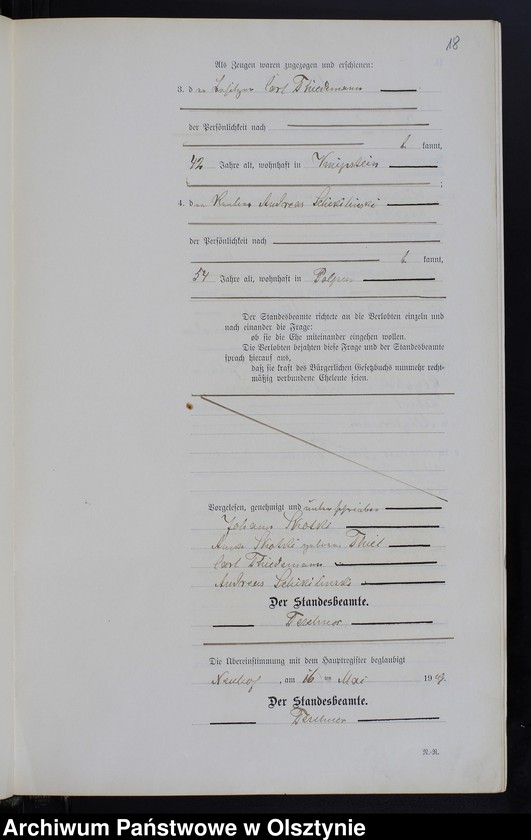 18
Als Zeugen waren zugezogen und erschienen:
3. der Besitzer Carl Thiedemann
der Persönlichkeit nach
be kannt,
42 Jahre alt, wohnhaft in
;
4. der Andreas Schikilinski
der Persönlichkeit nach
be kannt,
54 Jahre alt, wohnhaft in
Der Standesbeamte richtete an die Verlobten einzeln und
nach einander die Frage:
ob sie die Ehe miteinander eingehen wollen.
Die Verlobten bejahten diese Frage und der Standesbeamte
sprach hierauf aus,
daß sie kraft des Bürgerlichen Gesetzbuchs nunmehr recht-
mäßig verbundene Eheleute seien.
Vorgelesen, genehmigt und unterschrieben
Johann
geborene Thiel
Carl Thiedemann
Andreas Schikilinski
Der Standesbeamte.
Die Übereinstimmung mit dem Hauptregister beglaubigt
Neuhof, am 16 ten Mai 19
Der Standesbeamte.
N.-R.
Archiwum Państwowe w Olsztynie